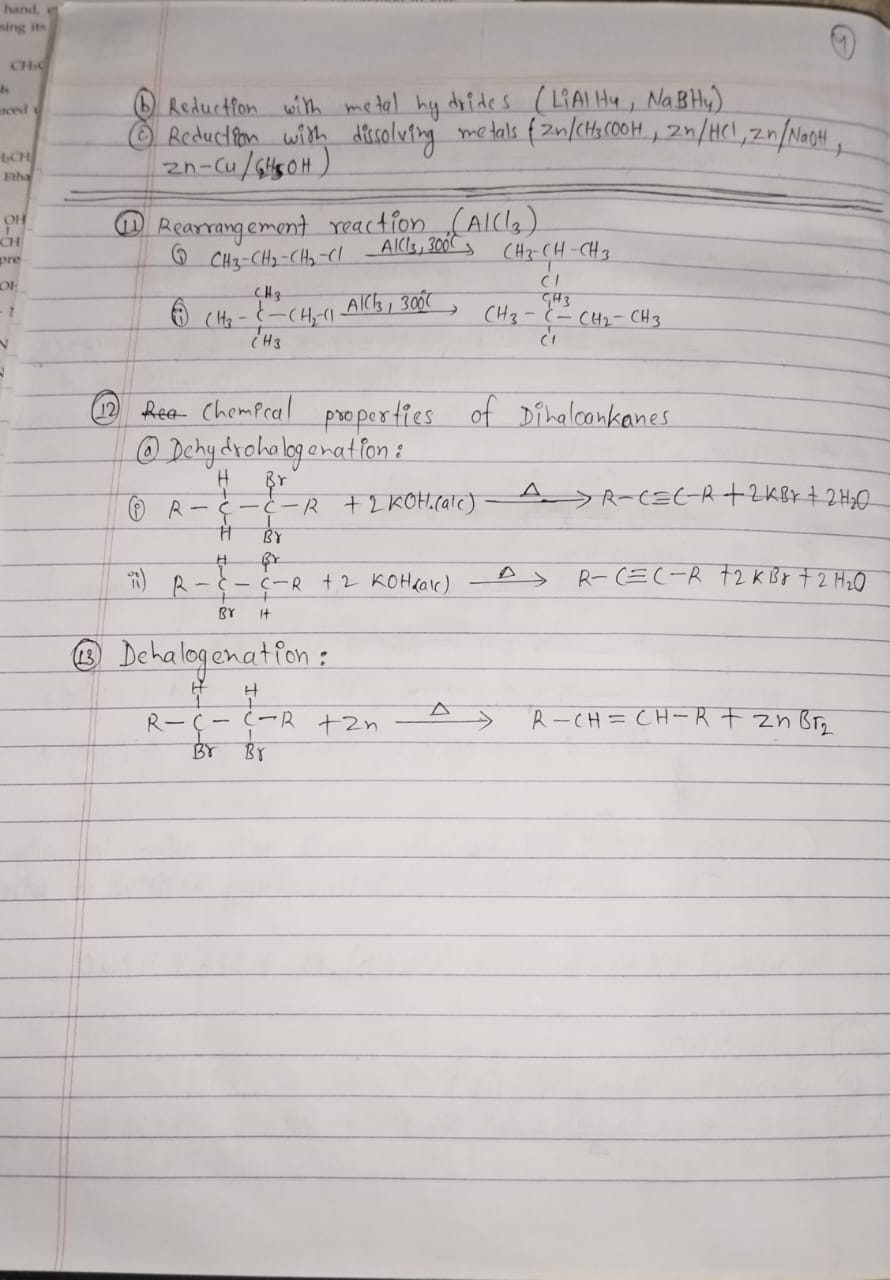 hand,
sing its
4
CH3C
(b) Reduction with metal hydrides (LiAlH4, NaBH4)
(c) Reduction with dissolving metals (Zn/CH3COOH, Zn/HCl, Zn/NaOH,
Zn-Cu/C2H5OH)
Etha
OH
CH
(11) Rearrangement reaction (AlCl3)
(i) CH3-CH2-CH2-Cl AlCl3, 300°C → CH3-CH-CH3
Cl
CH3 CH3
(ii) CH3-C-CH2-Cl AlCl3, 300°C → CH3-C-CH2-CH3
CH3 Cl
(12) Rea Chemical properties of Dihaloankanes
(a) Dehydrohalogenation:
H Br
(i) R-C-C-R + 2KOH(alc) Δ → R-C≡C-R + 2KBr + 2H2O
H Br
H Br
ii) R-C-C-R + 2 KOH(alc) Δ → R-C≡C-R + 2KBr + 2H2O
Br H
(13) Dehalogenation:
H H
R-C-C-R + Zn Δ → R-CH=CH-R + ZnBr2
Br Br